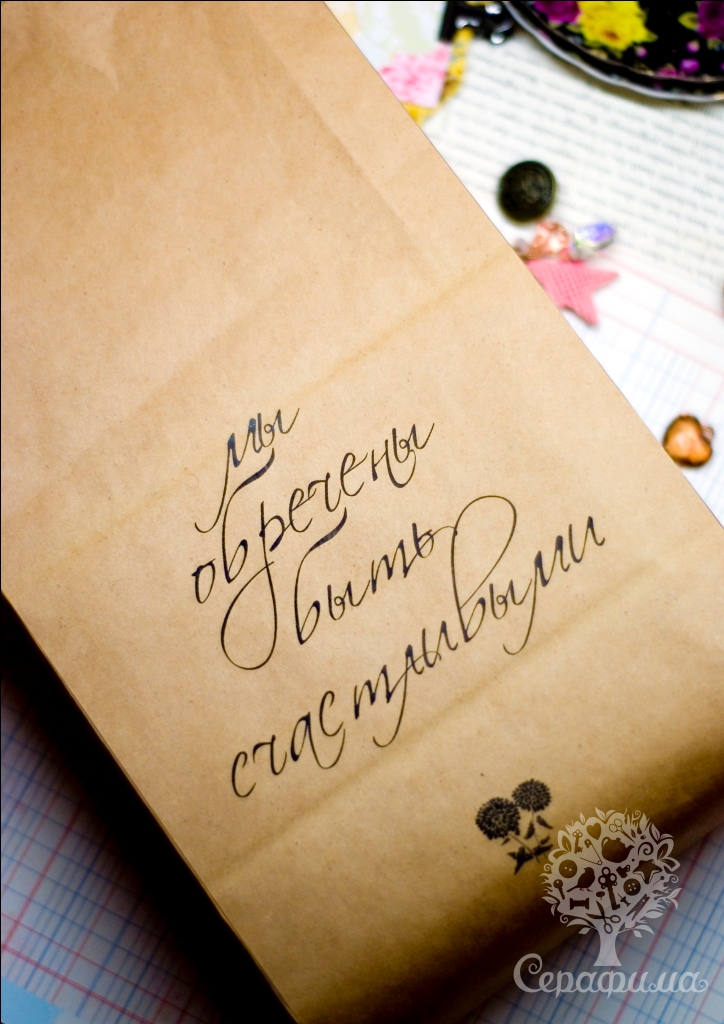 мы
обречены
быть
счастливыми
Серафима